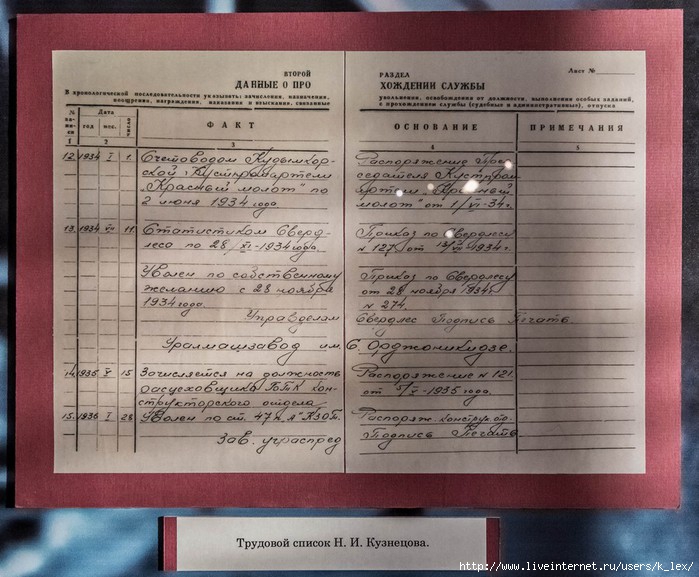 ВТОРОЙ РАЗДЕЛ
Лист №
ДАННЫЕ О ПРОХОЖДЕНИИ СЛУЖБЫ
В хронологической последовательности указывать: зачисления, назначения, увольнения, освобождения от должности, выполнения особых заданий,
поощрения, награждения, наказания и взыскания, связанные с прохождением службы (судебные и административные), отпуска
№ Дата
год мес. число
ФАКТ ОСНОВАНИЕ ПРИМЕЧАНИЯ
1 2 3 4 5
12. 1934 I 1. Счетоводом Кудымкор-
ской Кустпромартели
„Красный молот" по
2 июня 1934 года
Распоряжение Пред-
седателя Кустпром
артели „Красный
молот" от 1/VI-34г.
13. 1934 VII 11. Статистиком Сверд-
леса по 28/XI-1934 года.
Приказ по Свердлесу
№ 127 от 1934г.
Уволен по собственному
желанию с 28 ноября
1934 года.
Управделам
Приказ по Свердлесу
от 28 ноября 1934г.
№ 274
Свердлес Подпись Печать
Уралмашзавод им. С. Орджоникидзе.
14. 1935 V 15 Зачисляется на должность
расцеховщика БТПК кон-
структорского отдела
Распоряжение № 121
от V-1935 года.
15. 1936 I 28. Уволен по ст. 47 п. „А" КЗОТ.
Зав. учраспред
Распоряж. конструк. отд.
Подпись Печать
Трудовой список Н. И. Кузнецова.
http://www.liveinternet.ru/users/k_lex/